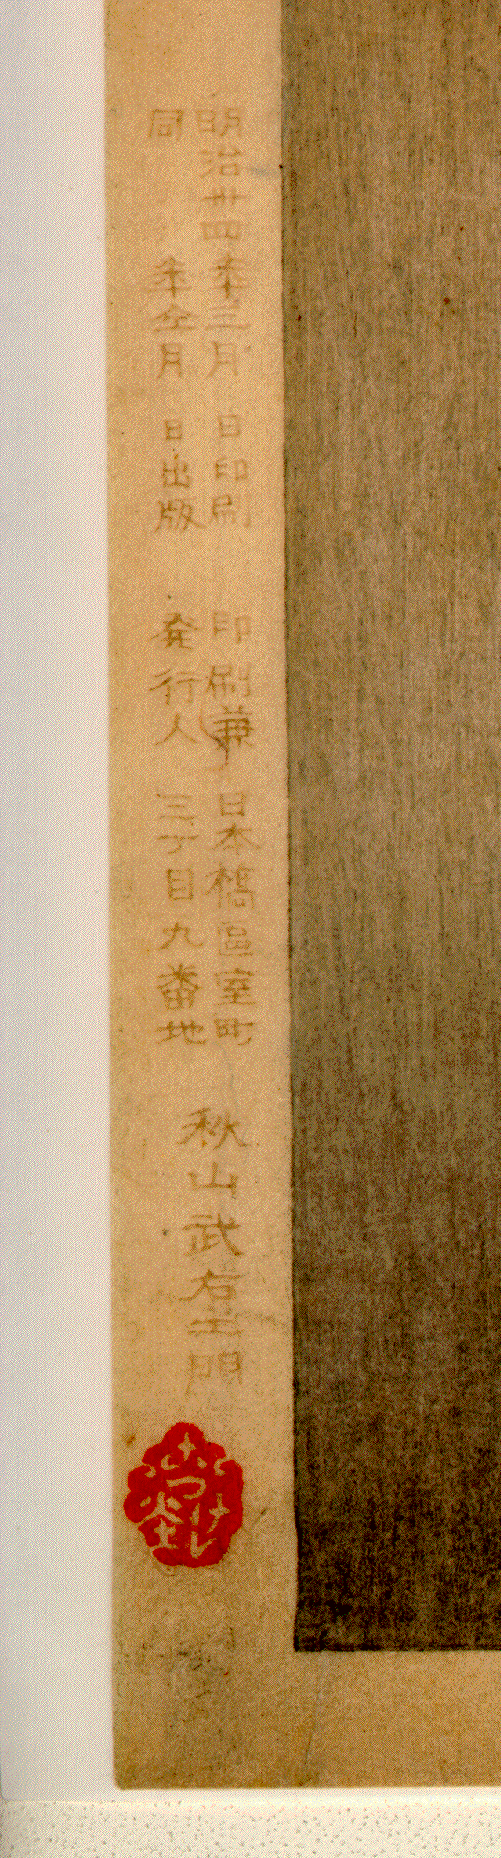 明治卅四年三月 日印刷
同 年仝月 日出版
印刷兼
発行人
日本橋區室町
三丁目九番地
秋山武右エ門